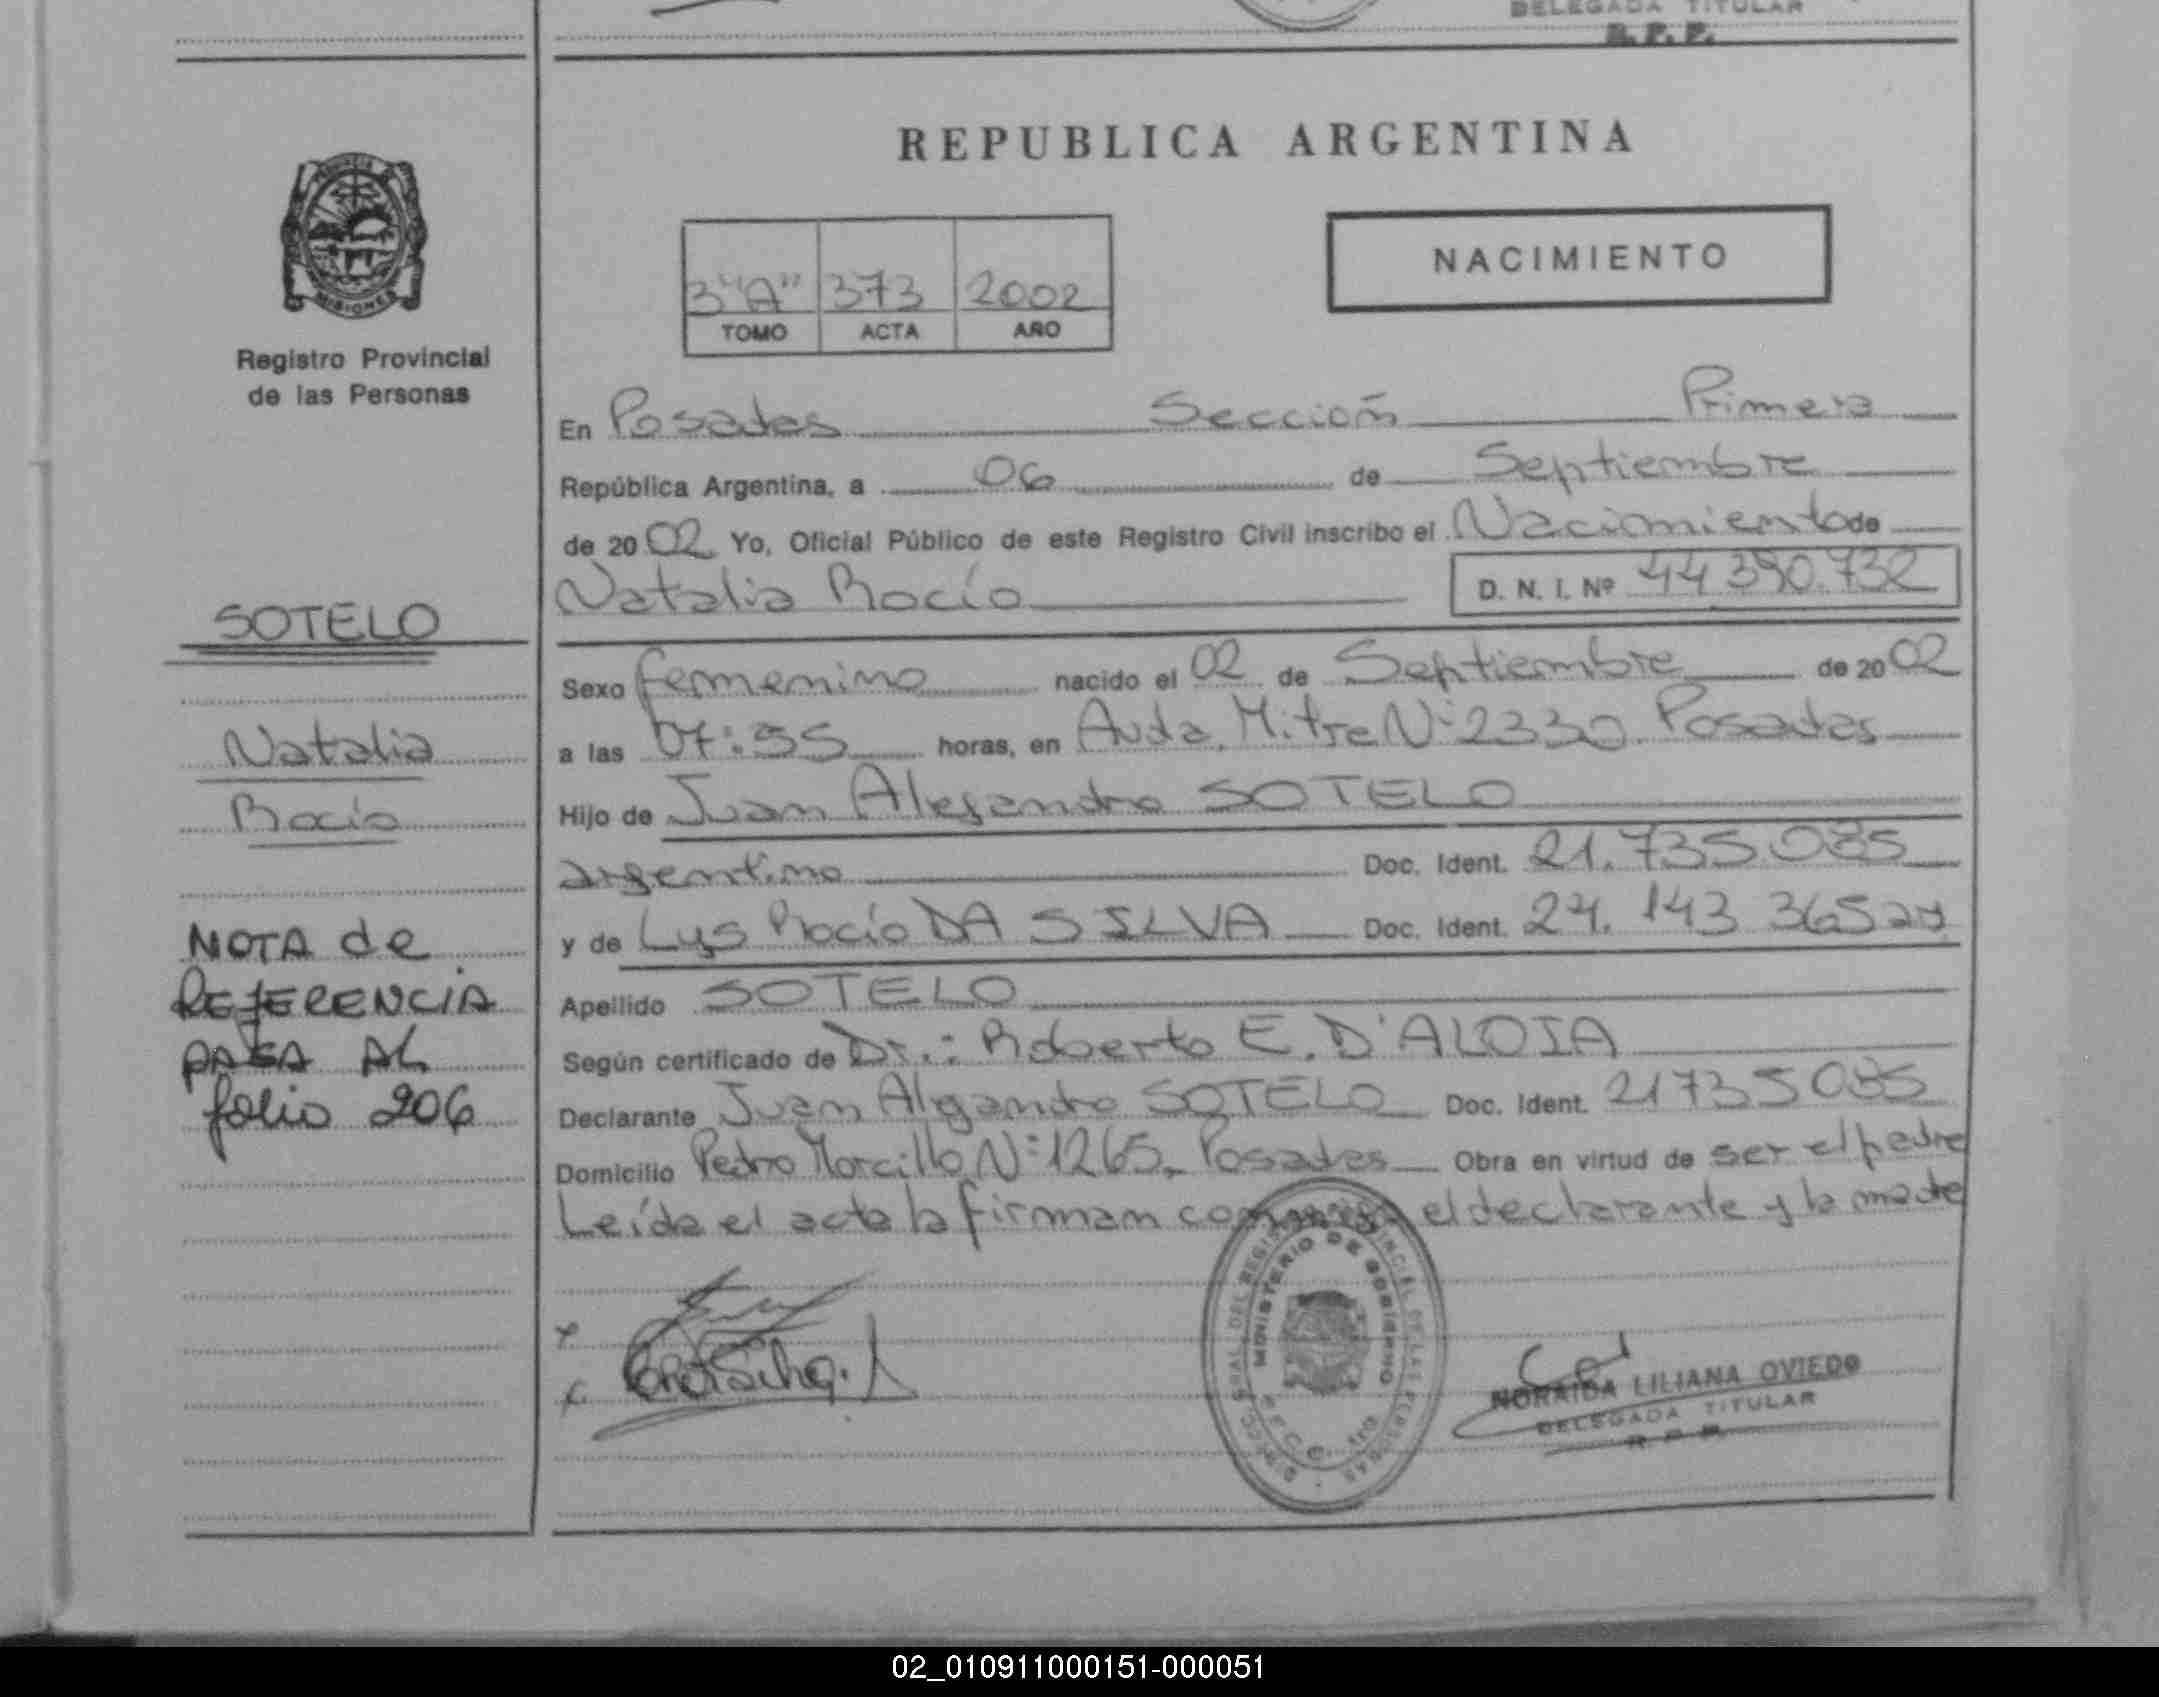 DELEGADA TITULAR
R. P. P.
REPUBLICA ARGENTINA
NACIMIENTO
3"A" 373 2002
TOMO ACTA AÑO
MISIONES
Registro Provincial
de las Personas
En Posadas Sección Primera
República Argentina, a 06 de Septiembre
de 2002 Yo, Oficial Público de este Registro Civil inscribo el Nacimiento de
Natalia Rocío D. N. I. Nº 44 390.732
SOTELO
Natalia
Rocío
NOTA de
REFERENCIA
PASA AL
folio 206
Sexo femenino nacido el 02 de Septiembre de 2002
a las 07:55 horas, en Avda. Mitre Nº 2330. Posadas
Hijo de Juan Alejandro SOTELO
argentino Doc. Ident. 21.735.085
y de Lys Rocío DA SILVA Doc. Ident. 24.143.365 arg
Apellido SOTELO
Según certificado de Dr.: Roberto E. D'ALOIA
Declarante Juan Alejandro SOTELO Doc. Ident. 21735085
Domicilio Pedro Morcillo Nº 1265, Posadas Obra en virtud de ser el padre
Leída el acta la firman conmigo el declarante y la madre
MINISTERIO DE GOBIERNO
NORAIDA LILIANA OVIEDO
DELEGADA TITULAR
R. P. P.
02_010911000151-000051